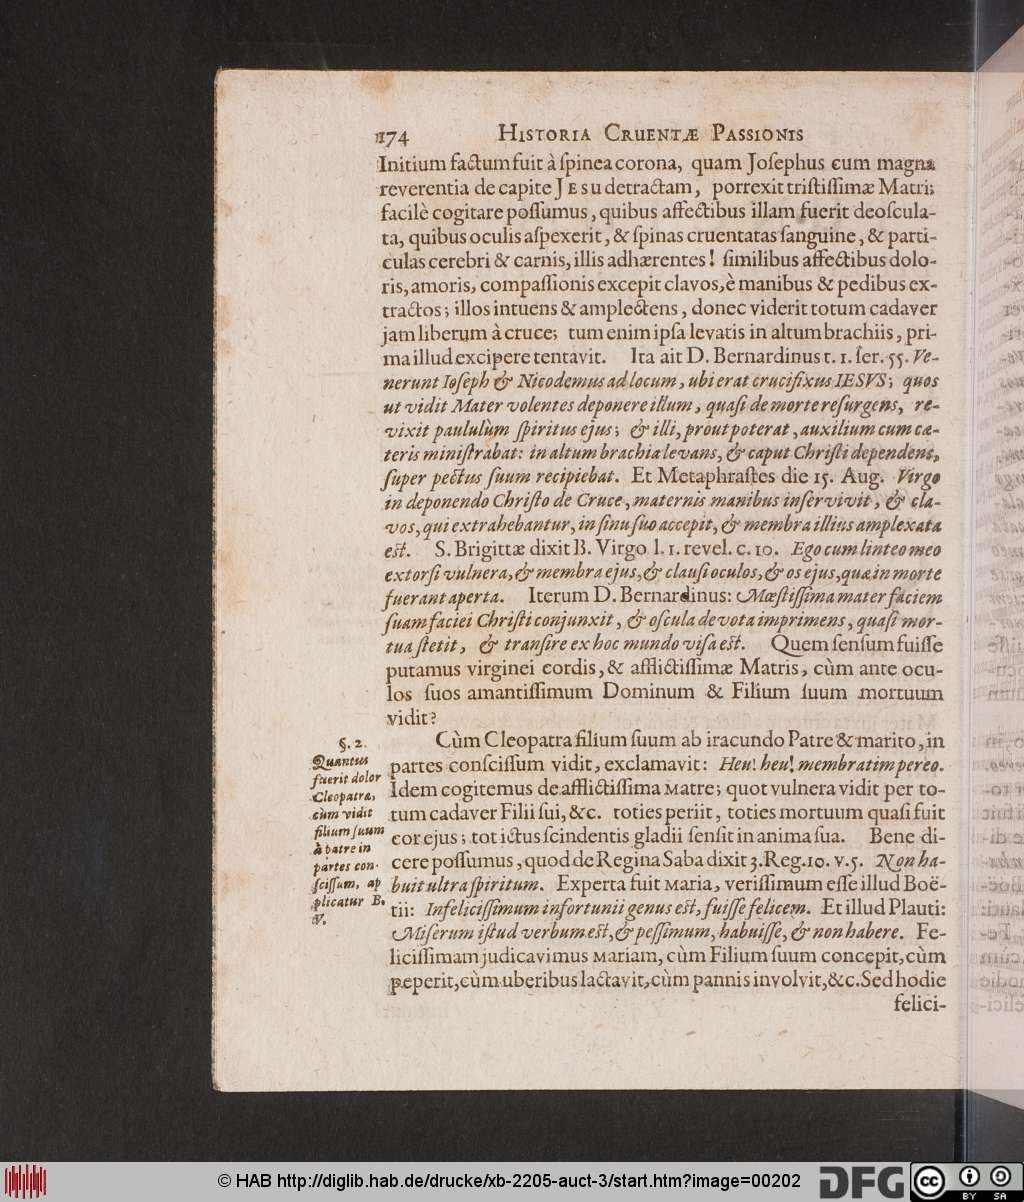 174 HISTORIA CRUENTÆ PASSIONIS
Initium factum fuit à ſpinea corona, quam Joſephus cum magna
reverentia de capite JESU detractam, porrexit triſtiſſimæ Matri;
facilè cogitare poſſumus, quibus affectibus illam fuerit deoſcula-
ta, quibus oculis aſpexerit, & ſpinas cruentatas ſanguine, & parti-
culas cerebri & carnis, illis adhærentes! ſimilibus affectibus dolo-
ris, amoris, compaſſionis excepit clavos, è manibus & pedibus ex-
tractos; illos intuens & amplectens, donec viderit totum cadaver
jam liberum à cruce; tum enim ipſa levatis in altum brachiis, pri-
ma illud excipere tentavit. Ita ait D. Bernardinus t. 1. ſer. 55. Ve-
nerunt Ioſeph & Nicodemus ad locum, ubi erat crucifixus IESVS; quos
ut vidit Mater volentes deponere illum, quaſi de morte reſurgens, re-
vixit paululùm ſpiritus ejus; & illi, prout poterat, auxilium cum cæ-
teris miniſtrabat: in altum brachia levans, & caput Chriſti dependens,
ſuper pectus ſuum recipiebat. Et Metaphraſtes die 15. Aug. Virgo
in deponendo Chriſto de Cruce, maternis manibus inſervivit, & cla-
vos, qui extrahebantur, in ſinu ſuo accepit, & membra illius amplexata
eſt. S. Brigittæ dixit B. Virgo l. 1. revel. c. 10. Ego cum linteo meo
extorſi vulnera, & membra ejus, & clauſi oculos, & os ejus, quæ in morte
fuerant aperta. Iterum D. Bernardinus: Mœſtiſſima mater faciem
ſuam faciei Chriſti conjunxit, & oſcula devota imprimens, quaſi mor-
tua ſtetit, & tranſire ex hoc mundo viſa eſt. Quem ſenſum fuiſſe
putamus virginei cordis, & afflictiſſimæ Matris, cùm ante ocu-
los ſuos amantiſſimum Dominum & Filium ſuum mortuum
vidit?
Cùm Cleopatra filium ſuum ab iracundo Patre & marito, in
partes conſciſſum vidit, exclamavit: Heu! heu! membratim pereo.
Idem cogitemus de afflictiſſima Matre; quot vulnera vidit per to-
tum cadaver Filii ſui, &c. toties periit, toties mortuum quaſi fuit
cor ejus; tot ictus ſcindentis gladii ſenſit in anima ſua. Bene di-
cere poſſumus, quod de Regina Saba dixit 3. Reg. 10. v. 5. Non ha-
buit ultra ſpiritum. Experta fuit Maria, veriſſimum eſſe illud Boë-
tii: Infeliciſſimum infortunii genus eſt, fuiſſe felicem. Et illud Plauti:
Miſerum iſtud verbum eſt, & peſſimum, habuiſſe, & non habere. Fe-
liciſſimam judicavimus Mariam, cùm Filium ſuum concepit, cùm
peperit, cùm uberibus lactavit, cùm pannis involvit, &c. Sed hodie
felici-
§. 2.
Quantus
fuerit dolor
Cleopatræ,
cùm vidit
filium ſuum
à patre in
partes con-
ſciſſum, ap
plicatur B.
V.
© HAB http://diglib.hab.de/drucke/xb-2205-auct-3/start.htm?image=00202
DFG
cc
BY SA